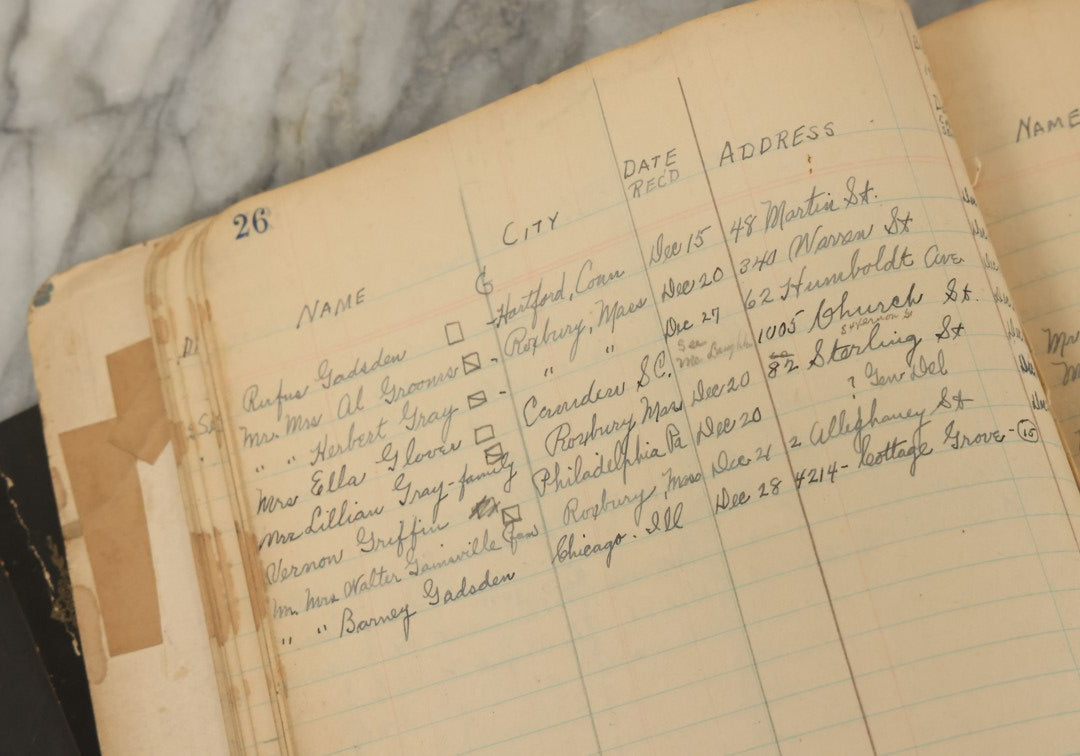 26
NAME G CITY DATE REC'D ADDRESS
Rufus Gadsden - Hartford, Conn Dec 15 48 Martin St.
Mr. Mrs Al Grooms - Roxbury, Mass Dec 20 340 Warren St
" " Herbert Gray - " " Dec 27 62 Humboldt Ave.
Mrs Ella Glover Camden S.C. See Mrs Daughter 1005 Church St.
Mrs Lillian Gray - family Roxbury Mass Dec 20 82 Sterling St
Vernon Griffin Philadelphia Pa Dec 20 ? Gen Del
Mr. Mrs Walter Gainsville fam Roxbury, Mass Dec 21 2 Alleghaney St
" " Barney Gadsden Chicago. Ill Dec 28 4214 - Cottage Grove - (15)
NAME
Mr